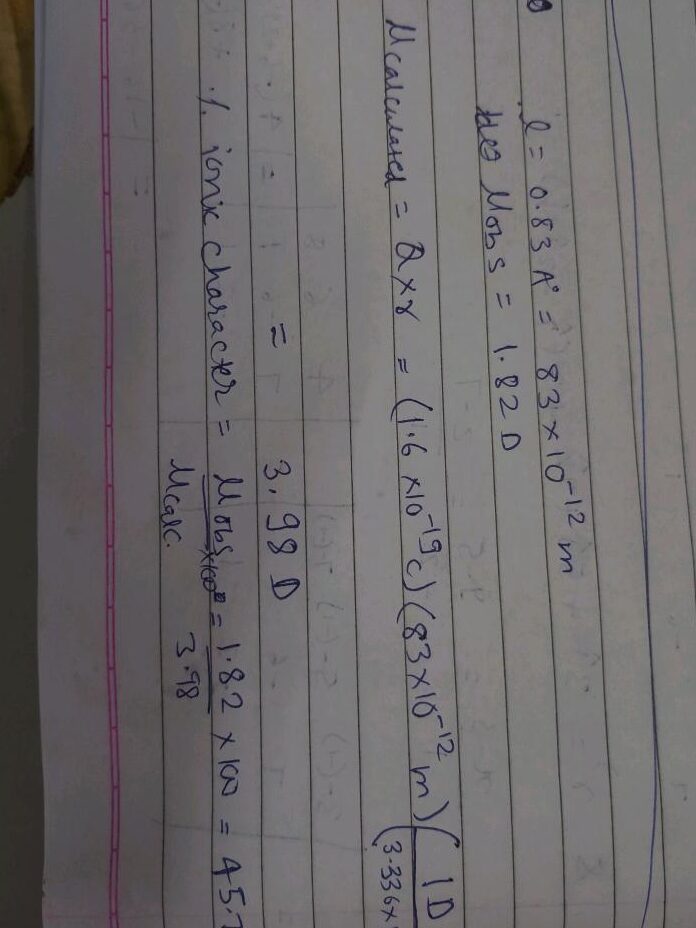 l = 0.83 A° = 83 × 10⁻¹² m
μ obs = 1.82 D
μ calculated = Q × r = (1.6 × 10⁻¹⁹ C) (83 × 10⁻¹² m) (1D / (3.336 ×
= 3.98 D
% ionic character = μ obs / μ calc. × 100 = 1.82 / 3.98 × 100 = 45.7